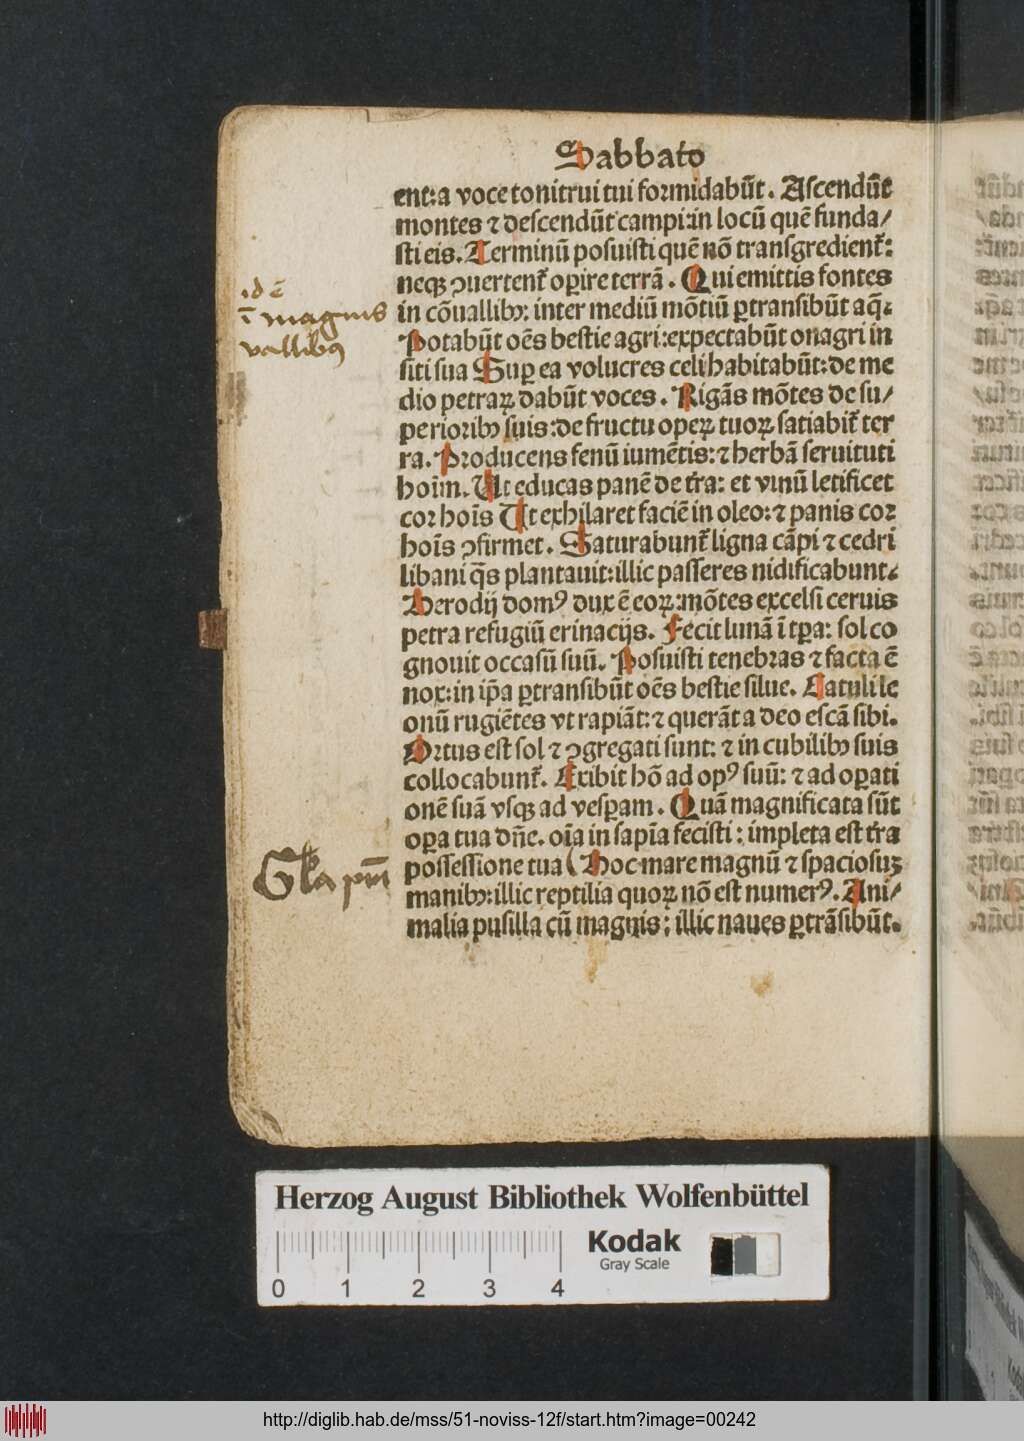 Sabbato
ent:a voce tonitrui tui formidabūt. Ascendūt
montes ⁊ descendūt campi:in locū quē funda/
sti eis. Terminū posuisti quē nō transgredient̃:
neqꝫ ꝯuertent̃ oꝑire terrā. Qui emittis fontes
in cōuallibꝰ: inter mediū mōtiū ꝑtransibūt aq̄.
Potabūt oēs bestie agri:expectabūt onagri in
siti sua Suꝑ ea volucres celi habitabūt:de me
dio petraꝝ dabūt voces. Rigās mōtes de su/
perioribꝰ suis:de fructu opeꝝ tuoꝝ satiabit̃ ter
ra. Producens fenū iumētis:⁊ herbā seruituti
hoīm. Ut educas panē de tr̄a: et vinū letificet
cor hoīs Ut exhilaret faciē in oleo:⁊ panis cor
hoīs ꝯfirmet. Saturabunt̃ ligna cāpi ⁊ cedri
libani q̄s plantauit:illic passeres nidificabunt.
Herodij domꝰ dux ē eoꝝ:mōtes excelsi ceruis
petra refugiū erinacijs. Fecit lunā ī tꝑa: sol co
gnouit occasū suū. Posuisti tenebras ⁊ facta ē
nox:in ip̄a ꝑtransibūt oēs bestie silue. Catuli le
onū rugiētes vt rapiāt:⁊ querāt a deo escā sibi.
Ortus est sol ⁊ ꝯgregati sunt: ⁊ in cubilibꝰ suis
collocabunt̃. Exibit hō ad opꝰ suū: ⁊ ad oꝑati
onē suā vsqꝫ ad vesꝑam. Quā magnificata sūt
oꝑa tua dn̄e. oīa in sapīa fecisti: impleta est tr̄a
possessione tua ( Hoc mare magnū ⁊ spaciosuꝫ
manibꝰ:illic reptilia quoꝝ nō est numerꝰ. Ani/
malia pusilla cū magnis: illic naues ꝑtrāsibūt.
.id ē
ī magnis
vallibꝰ
Gl̄a pr̄i
Herzog August Bibliothek Wolfenbüttel
Kodak
Gray Scale
0 1 2 3 4
http://diglib.hab.de/mss/51-noviss-12f/start.htm?image=00242